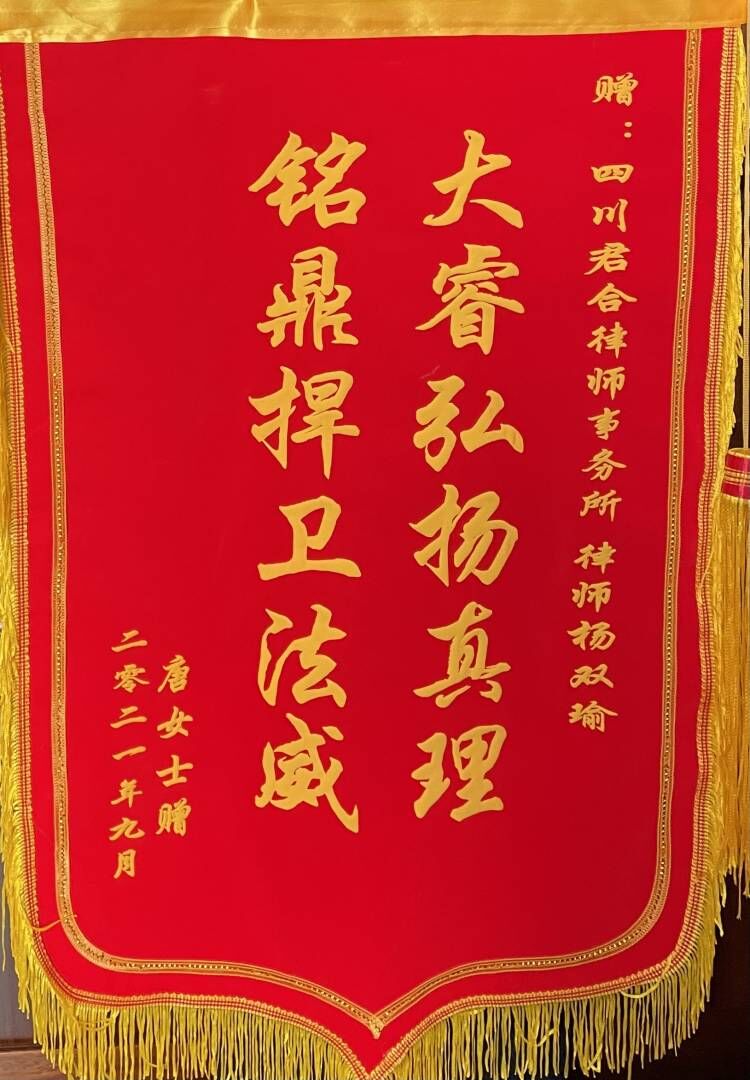 赠：四川君合律师事务所 律师杨双瑜
大睿弘扬真理
铭鼎捍卫法威
唐女士赠
二零二一年九月